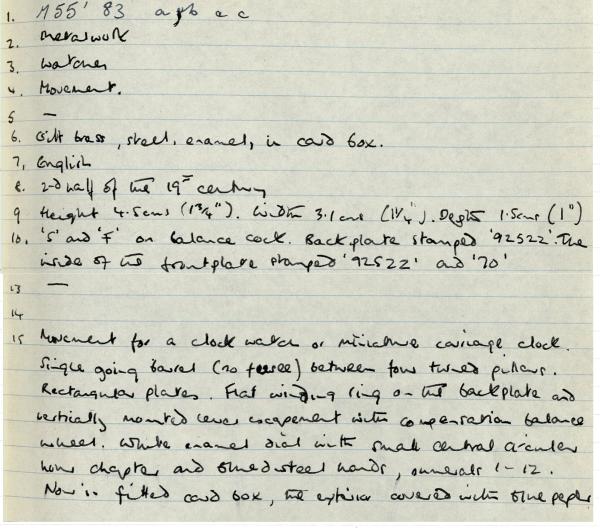 1. M55' 83 a, b & c
2. Metalwork
3. Watches
4. Movement.
5 —
6. Gilt brass, steel, enamel, in card box.
7, English
8. 2nd half of the 19th century
9 Height 4.5cms (1¾"). Width 3.1cms (1¼"). Depth 1.5cms (1")
10. 'S' and 'F' on balance cock. Backplate stamped '92522'. The
inside of the frontplate stamped '92522' and '70'
13 —
14
15 Movement for a clock watch or miniature carriage clock.
Single going barrel (no fusee) between four turned pillars.
Rectangular plates. Flat winding ring on the backplate and
vertically mounted lever escapement with compensation balance
wheel. White enamel dial with small central circular
hour chapter and blued steel hands, numerals 1-12.
Now in fitted card box, the exterior covered with blue paper